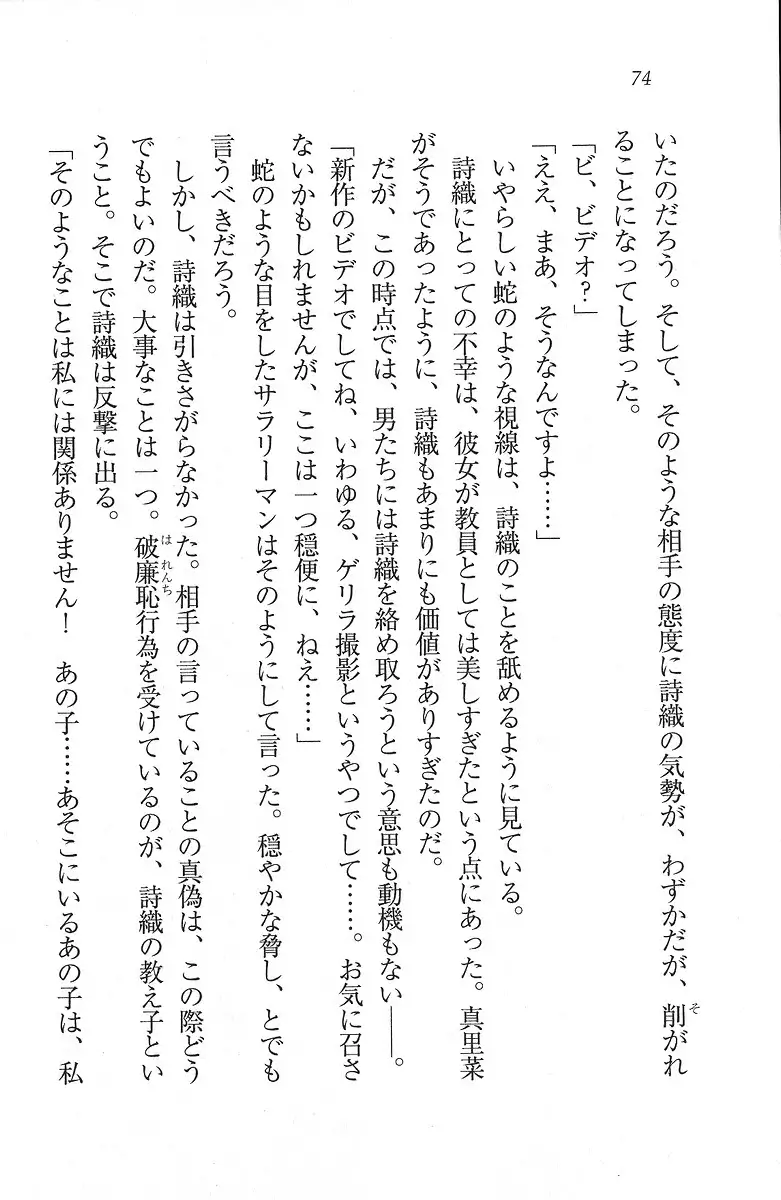 74
いたのだろう。そして、そのような相手の態度に詩織の気勢が、わずかだが、削がれ
そ
ることになってしまった。
「ビ、ビデオ?」
「ええ、まあ、そうなんですよ……」
いやらしい蛇のような視線は、詩織のことを舐めるように見ている。
詩織にとっての不幸は、彼女が教員としては美しすぎたという点にあった。真里菜
がそうであったように、詩織もあまりにも価値がありすぎたのだ。
だが、この時点では、男たちには詩織を絡め取ろうという意思も動機もない――。
「新作のビデオでしてね、いわゆる、ゲリラ撮影というやつでして……。お気に召さ
ないかもしれませんが、ここは一つ穏便に、ねえ……」
蛇のような目をしたサラリーマンはそのようにして言った。穏やかな脅し、とでも
言うべきだろう。
しかし、詩織は引きさがらなかった。相手の言っていることの真偽は、この際どう
でもよいのだ。大事なことは一つ。破廉恥行為を受けているのが、詩織の教え子とい
はれんち
うこと。そこで詩織は反撃に出る。
「そのようなことは私には関係ありません! あの子……あそこにいるあの子は、私